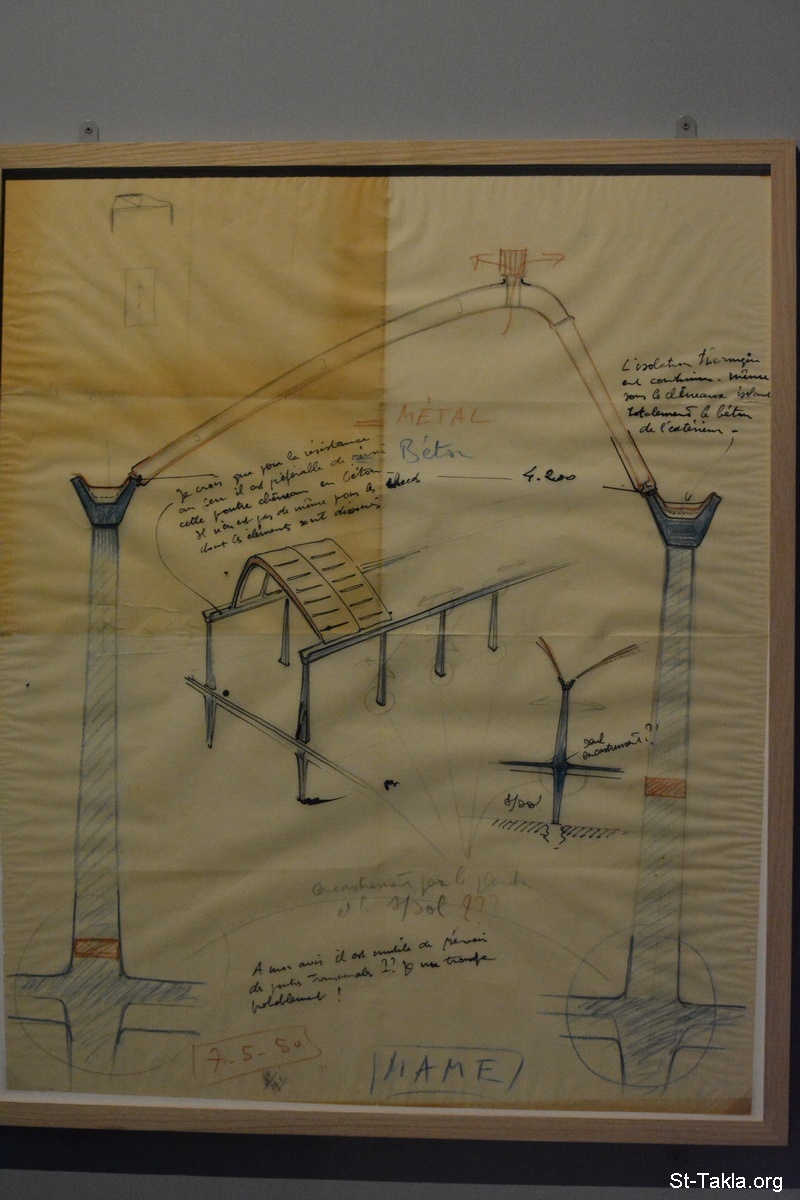 L'isolation thermique
est continue - même
sous le chêneaux isolant
totalement le béton
de l'extérieur -
= MÉTAL
Béton
Je crois que pour la résistance
au feu il est préférable de prévoir
cette poutre chêneau en béton
Il n'en est pas de même pour les sheds
dont les éléments sont dissociés
4.200
seul
encastrement ??
s/sol
encastrement par le
et le s/sol ???
A mon avis il est inutile de prévoir
de poutres transversales ?? je me trompe
probablement !
7-5-50
MAME
St-Takla.org